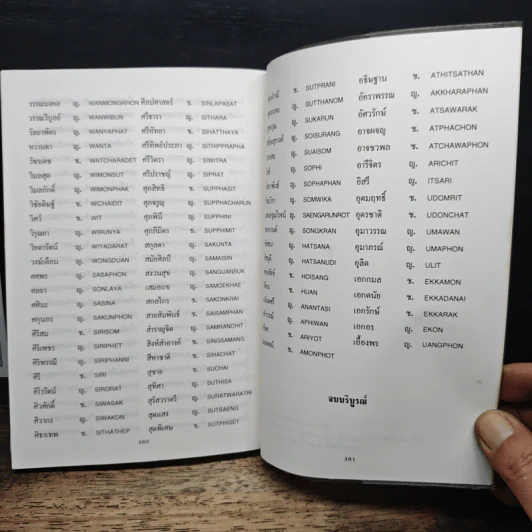 วรรณมงคล ญ. WANMONGKHON ศิลปศาสตร์ ช. SINLAPASAT
วรรณวิบูลย์ ญ. WANWIBUN ศรีธารา ญ. SITHARA
วัลยาพัตร ญ. WANYAPHAT ศรีหัทยา ญ. SIHATTHAYA
หวานตา ญ. WANTA ศรีทิพย์ประภา ญ. SITHIPPRAPHA
วัชรเดช ช. WATCHARADET ศรีวิตรา ญ. SIWITRA
วิมลสุด ญ. WIMONSUT ศรีปราชญ์ ญ. SIPRAT
วิมลภักดิ์ ญ. WIMONPHAK ศุภสิทธิ ช. SUPPHASIT
วิชัยดิษฐ์ ช. WICHAIDIT ศุภจรูญ ญ. SUPPHACHARUN
วิศว์ ช. WIT ศุภพินี ญ. SUPPHINI
วิรุณยา ญ. WIRUNYA ศุภภิมิตร ช. SUPPHIMIT
วิยดารัตน์ ญ. WIYADARAT สกุลตา ญ. SAKUNTA
วงษ์เดือน ญ. WONGDUAN สมัยศิลป์ ญ. SAMAISIN
ศศพร ญ. SASAPHON สงวนสุข ช. SANGUANSUK
ศลยา ญ. SONLAYA เสมอแข ญ. SAMOEKHAE
ศศินะ ญ. SASINA สกลไกร ช. SAKONKRAI
ศกุนภร ญ. SAKUNPHON สายสัมพันธ์ ช. SAISAMPHAN
ศิริสม ญ. SIRISOM สำราญจิต ญ. SAMRANCHIT
ศิริเพชร ญ. SIRIPHET สิงห์สำอางค์ ช. SINGSAMANG
ศิริพรรณี ญ. SIRIPHANNI สีหาชาติ ช. SIHACHAT
ศิริ ญ. SIRI สุชาย ช. SUCHAI
ศิโรรัตน์ ญ. SIRORAT สุทิศา ญ. SUTHISA
ศิวศักดิ์ ช. SIWASAK สุรัสวาตรี ญ. SURATWARATRI
ศิวากร ญ. SIWAKON สุดแสง ญ. SUTSAENG
ศิขาเทพ ช. SITHATHEP สุดพิเศษ ช. SUTPHISET
360
ญ. SUTPRANI อธิษฐาน ช. ATHITSATHAN
ช. SUTTHANOM อัคราพรรณ ญ. AKKHARAPHAN
ญ. SUKARUN อัศวรักษ์ ช. ATSAWARAK
ญ. SOISURANG อาจผจญ ช. ATPHACHON
ญ. SUAISOM อาจชวพล ช. ATCHAWAPHON
ญ. SOPHI อาริจิตร ญ. ARICHIT
ญ. SOPHAPHAN อิสรี ญ. ITSARI
ญ. SOMWIKA อุดมฤทธิ์ ช. UDOMRIT
ญ. SAENGARUNROT อุดรชาติ ช. UDONCHAT
ช. SONGKRAN อุมาวรรณ ญ. UMAWAN
ญ. HATSANA อุมาภรณ์ ญ. UMAPHON
ญ. HATSANUDI อุลิต ญ. ULIT
ช. HOISANG เอกกมล ช. EKKAMON
ช. HUAN เอกดนัย ช. EKKADANAI
ญ. ANANTASI เอกรักษ์ ช. EKKARAK
ญ. APHIWAN เอกอร ญ. EKON
ช. ARIYOT เอื้องพร ญ. UANGPHON
ช. AMONPHOT
จบบริบูรณ์
361